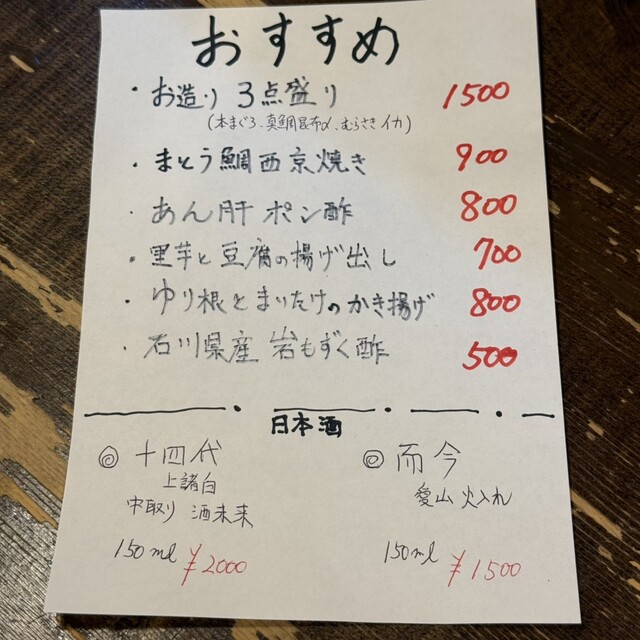 おすすめ
・お造り 3点盛り 1500
(本まぐろ、真鯛昆布〆、むらさきイカ)
・まとう鯛西京焼き 900
・あん肝ポン酢 800
・里芋と豆腐の揚げ出し 700
・ゆり根とまいたけのかき揚げ 800
・石川県産 岩もずく酢 500
日本酒
◎ 十四代
上諸白
中取り 酒未来
150ml ¥2000
◎ 而今
愛山 火入れ
150ml ¥1500